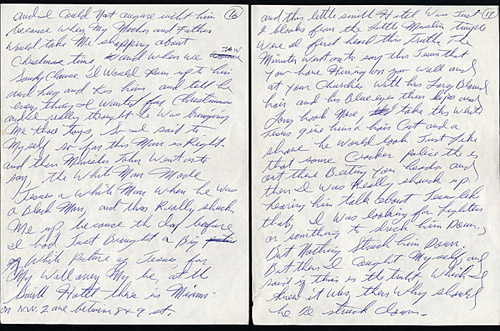 16
and I Could Not argure with him
because when My Mother and Father
Would take Me shopping about
Christmas time, and when we saw
Sandy Clause I Would run up to him
and hug and kiss him and tell he
every thing I wanted for Christmas
and I really thought he was bringing
Me those toys, So I said to
Myself so far this Man is Right.
and then Minister John Went on to
say the White Man Made
Jesus a White Man when he was
a Black Man, and this Really shook
Me up because the day before
I had Just Brought a Big
White picture of Jesus for
My Wall over My be, at the
Smith Hotel there in Miami
on N.W. 2 ave between 8 & 9 st.
17
and this little Smith Hotel Was Just
2 blocks from the little Muslim temple
Were I first heard this Truth. The
Minister Went on to say this Jesus that
You have Hung on your wall and
at your Churches With his Long Blond
hair and his Blue eyes thin lips and
Long hook Nose, take this White
Jesus give him a hair Cut and a
shave he would look Just like
that some Cracker police that is
out there Beating your heads and
then I was Really shook up
hearing him talk about Jesus like
that, I Was looking for lighten
or something to strick him Down,
But Nothing Struck him Down.
But then I Caught Myself and
said if this is the truth Which I
knew it was, then Why should
he be struck down.